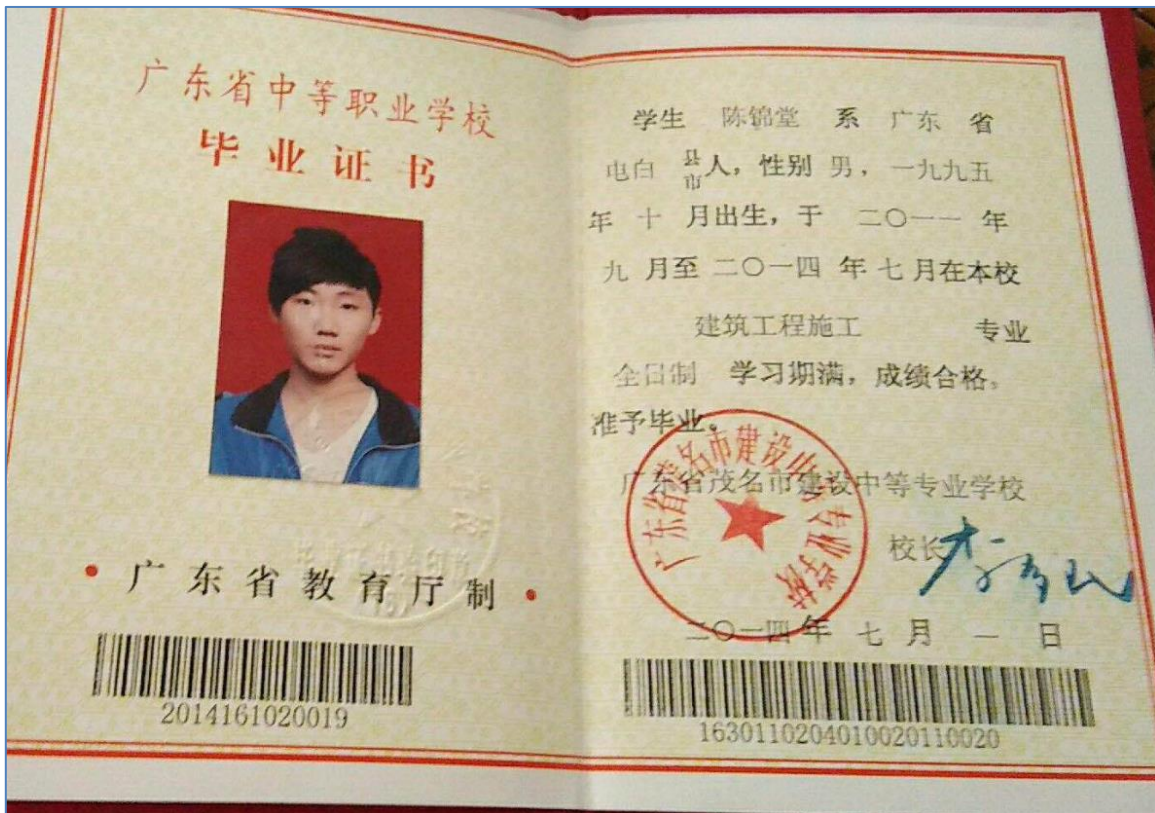 广东省中等职业学校
毕业证书
• 广东省教育厅制 •
2014161020019
学生 陈锦堂 系 广东 省
电白 县市人，性别 男，一九九五
年 十 月出生，于 二〇一一 年
九 月至 二〇一四 年 七 月在本校
建筑工程施工 专业
全日制 学习期满，成绩合格，
准予毕业。
广东省茂名市建设中等专业学校
广东省茂名市建设中等专业学校
校长
二〇一四 年 七 月 一 日
1630110204010020110020